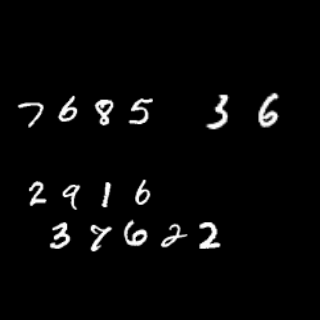 7685 36
2916
37622